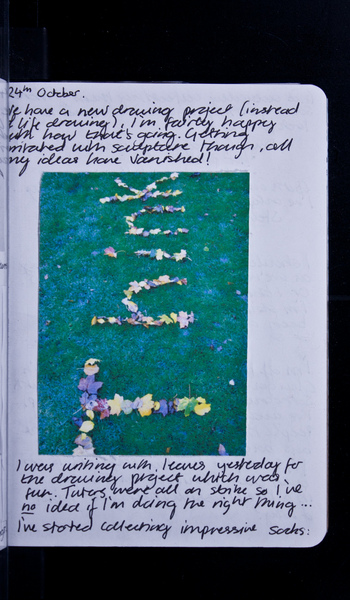 24th October.
We have a new drawing project (instead
of life drawing). I'm fairly happy
with how that's going. Getting
frustrated with sculpture though, all
my ideas have vanished!
Think
I was writing with leaves yesterday for
the drawing project which was
fun. Tutors were all on strike so I've
no idea if I'm doing the right thing...
I've started collecting impressive socks: